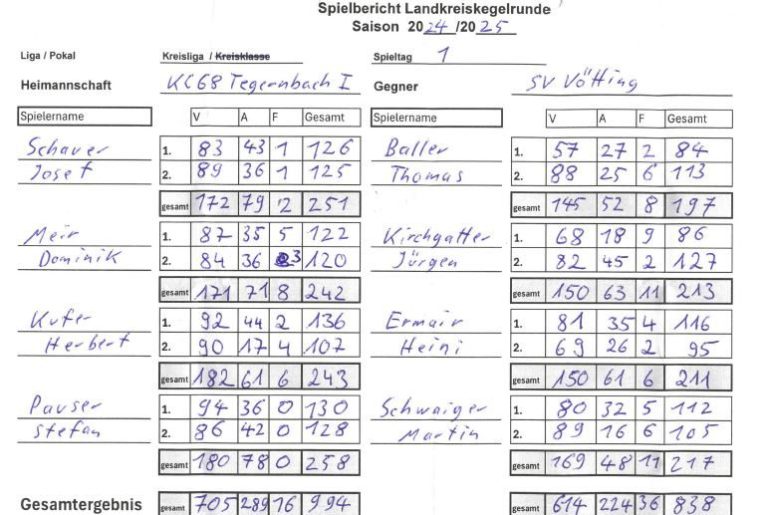 Spielbericht Landkreiskegelrunde
Saison 2024/2025
Liga / Pokal Kreisliga / Kreisklasse Spieltag 1
Heimannschaft KC68 Tegernbach I Gegner SV Vötting
Spielername V A F Gesamt Spielername V A F Gesamt
Schauer 1. 83 43 1 126 Baller 1. 57 27 2 84
Josef 2. 89 36 1 125 Thomas 2. 88 25 6 113
gesamt 172 79 2 251 gesamt 145 52 8 197
Meir 1. 87 35 5 122 Kirchgatter 1. 68 18 9 86
Dominik 2. 84 36 3 120 Jürgen 2. 82 45 2 127
gesamt 171 71 8 242 gesamt 150 63 11 213
Kufer 1. 92 44 2 136 Ermair 1. 81 35 4 116
Herbert 2. 90 17 4 107 Heini 2. 69 26 2 95
gesamt 182 61 6 243 gesamt 150 61 6 211
Pauser 1. 94 36 0 130 Schwaiger 1. 80 32 5 112
Stefan 2. 86 42 0 128 Martin 2. 89 16 6 105
gesamt 180 78 0 258 gesamt 169 48 11 217
Gesamtergebnis gesamt 705 289 16 994 gesamt 614 224 36 838